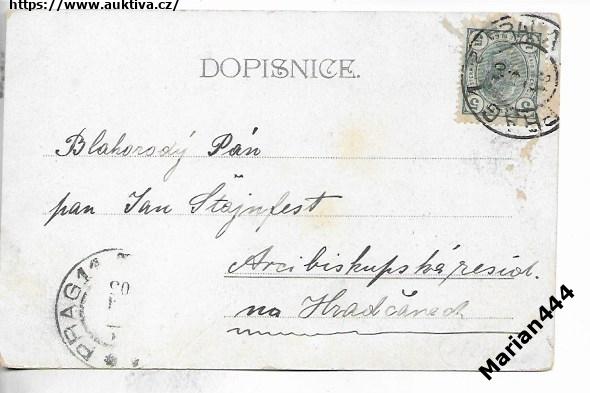 https://www.auktiva.cz/
DOPISNICE.
Blahorodý Pán
pan Jan Štajnfest
Arcibiskupská resid.
na Hradčanech
PRAG 11
Marian444